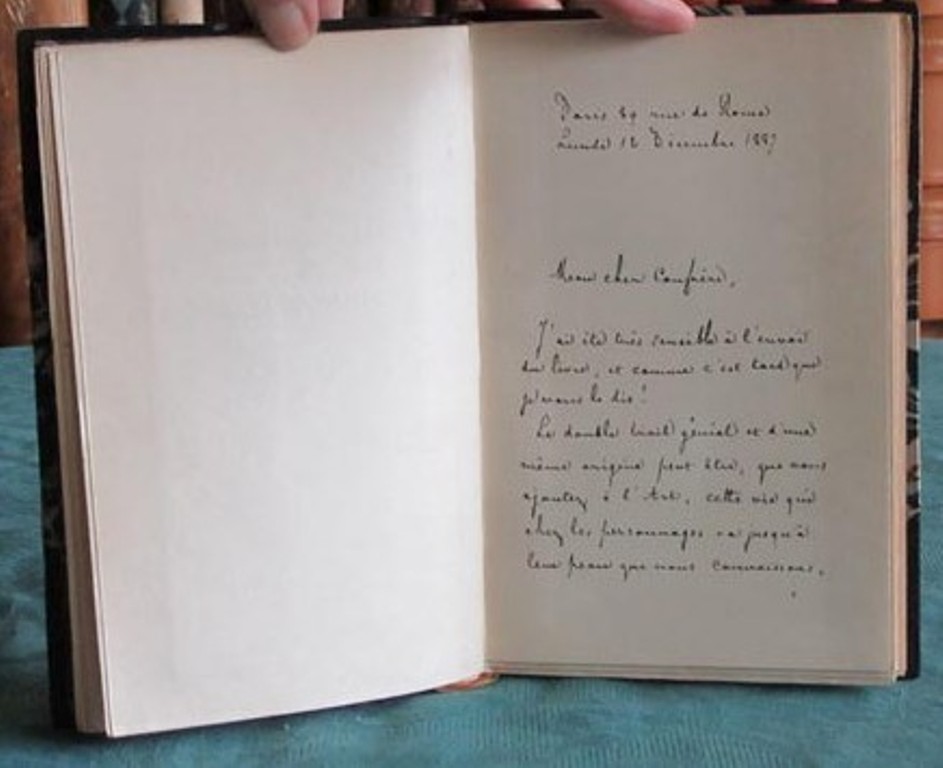 Paris 89 rue de Rome
Lundi 12 Décembre 1887
Mon cher Confrère,
J'ai été très sensible à l'envoi
du livre, et comme c'est tard que
je vous le dis!
Le double trait génial et d'une
même origine peut-être, que vous
ajoutez à l'Art, cette vie qui
chez les personnages va jusqu'à
leur peau que nous connaissons,